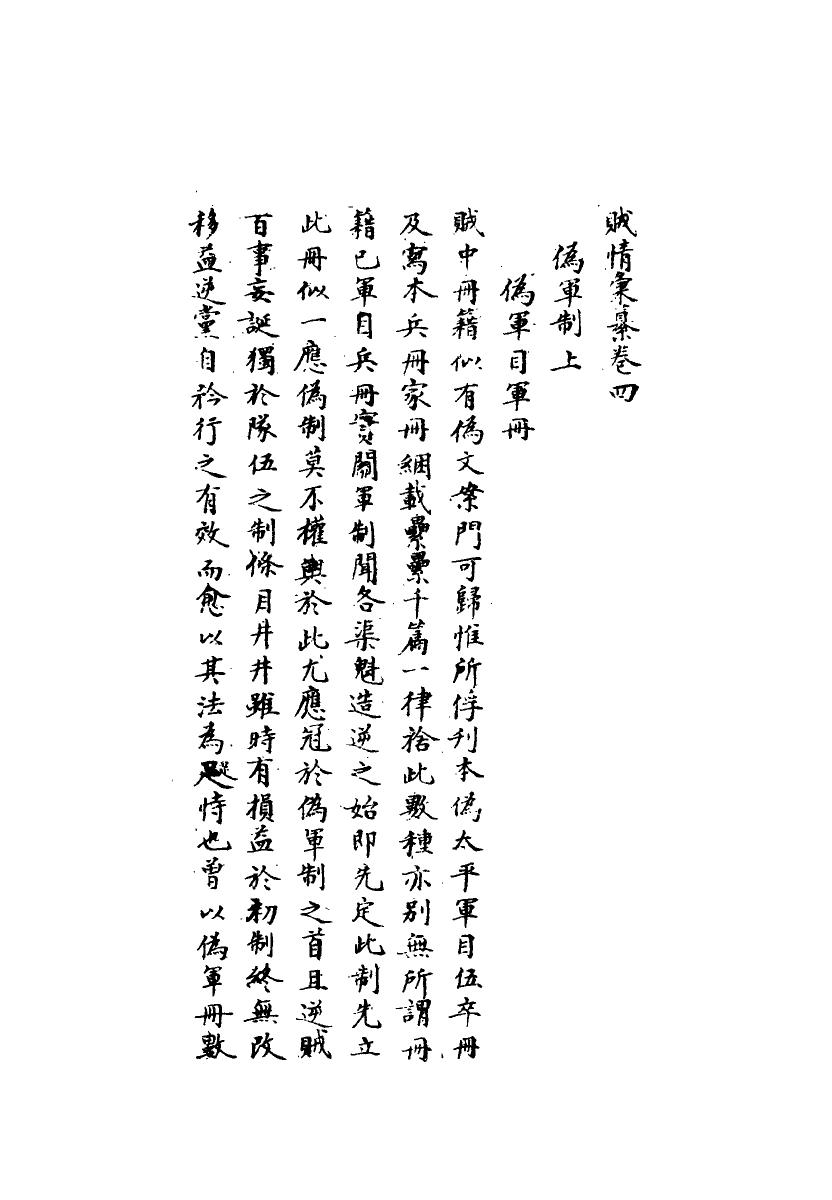 賊情彙纂卷四
偽軍制上
偽軍目軍冊
賊中冊籍似有偽文案門可歸惟所俘刋本偽太平軍目伍卒冊
及寫本兵冊家冊綑載纍纍千篇一律捨此數種亦别無所謂冊
籍已軍目兵冊實關軍制聞各渠魁造逆之始即先定此制先立
此冊似一應偽制莫不權輿於此尤應冠於偽軍制之首且逆賊
百事妄誕獨於隊伍之制條目井井雖時有損益於初制終無改
移益逆黨自矜行之有效而愈以其法為足恃也曾以偽軍冊數